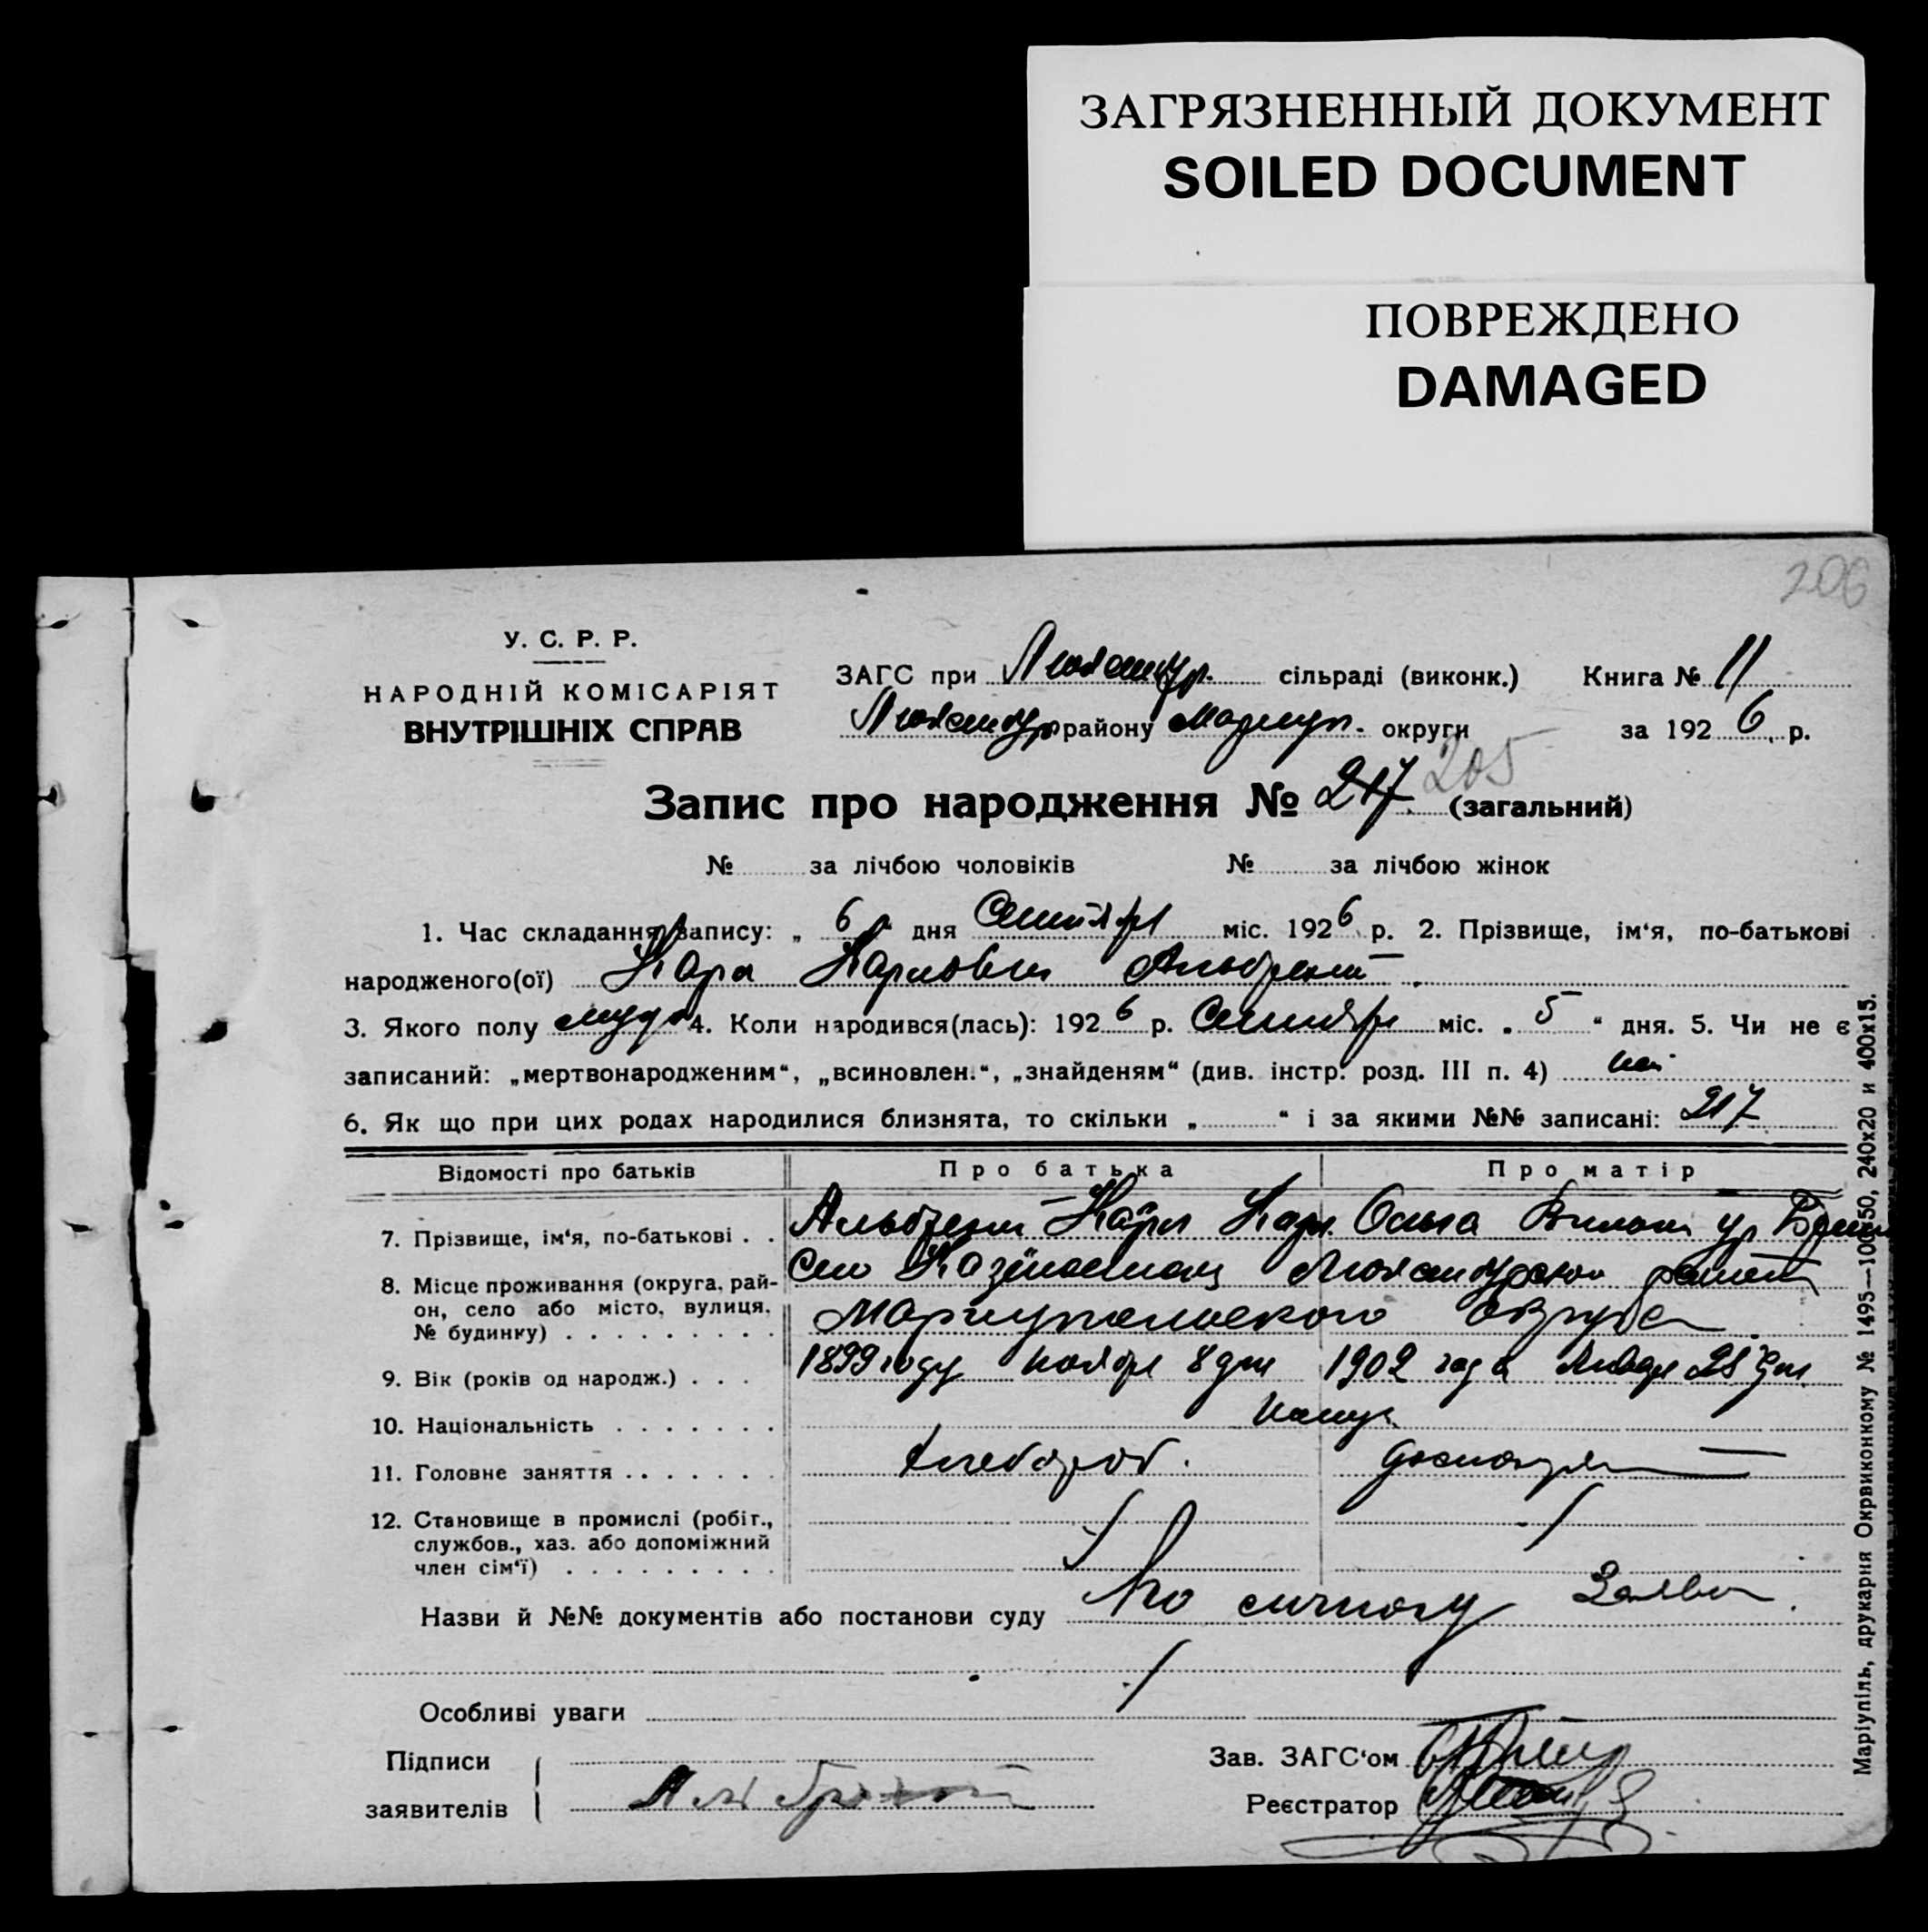 ЗАГРЯЗНЕННЫЙ ДОКУМЕНТ
SOILED DOCUMENT
ПОВРЕЖДЕНО
DAMAGED
206
У. С. Р. Р.
НАРОДНІЙ КОМІСАРІЯТ
ВНУТРІШНІХ СПРАВ
ЗАГС при Люксембур. сільраді (виконк.) Книга № 11
Люксембур району Мариуп. округи за 1926 р.
Запис про народження № 217 205 (загальний)
№ за лічбою чоловіків № за лічбою жінок
1. Час складання запису: „ 6 " дня Сентября міс. 1926 р. 2. Прізвище, ім'я, по-батькові
народженого(ої) Карл Карлович Альбрехт
3. Якого полу 4. Коли народився(лась): 1926 р. Сентября міс. „ 5 " дня. 5. Чи не є
записаний: „мертвонародженим", „всиновлен.", „знайденям" (див. інстр. розд. III п. 4)
6. Як що при цих родах народилися близнята, то скільки „ " і за якими №№ записані: 217
Відомості про батьків Про батька Про матір
7. Прізвище, ім'я, по-батькові . . Альбрехт Карл Карл. Ольга ур
8. Місце проживання (округа, рай-
он, село або місто, вулиця,
№ будинку) . . . . . . . . .
Село Люксембурского
Мариупольского округа
9. Вік (років од народж.) . . . 1899 году ноября 8 дня 1902 года 28 дня
10. Національність . . . . . . .
11. Головне заняття . . . . . . . хлебороб.
12. Становище в промислі (робіт.,
службов., хаз. або допоміжний
член сім'ї) . . . . . . . . .
Назви й №№ документів або постанови суду По личному Заяви.
Особливі уваги
Підписи
заявителів
Зав. ЗАГС'ом
Реєстратор
Маріупіль, друкарня Окрвиконкому № 1495—100x50, 240x20 и 400x15.